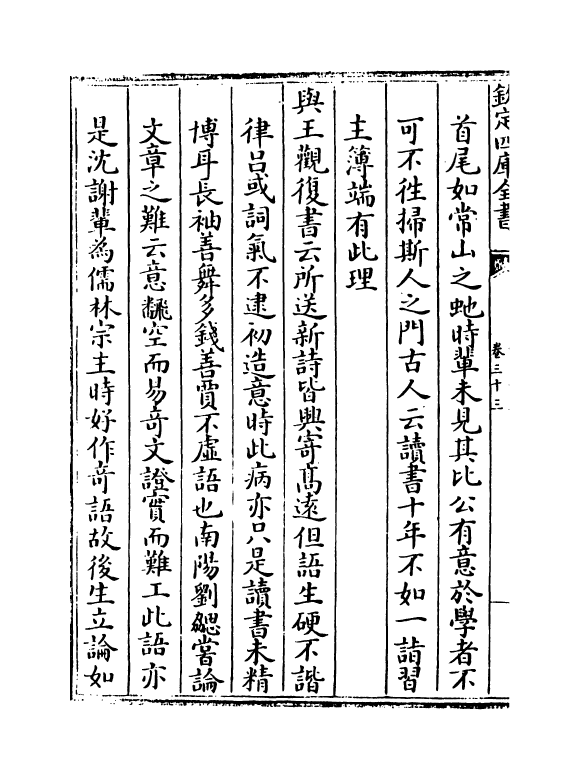 欽定四庫全書
卷三十三
首尾如常山之虵時輩未見其比公有意於學者不
可不徃掃斯人之門古人云讀書十年不如一詣習
主簿端有此理
與王觀復書云所送新詩皆興寄髙逺但語生硬不諧
律吕或詞氣不逮初造意時此病亦只是讀書未精
博耳長袖善舞多錢善賈不虚語也南陽劉勰嘗論
文章之難云意飜空而易竒文證實而難工此語亦
是沈謝輩為儒林宗主時好作竒語故後生立論如